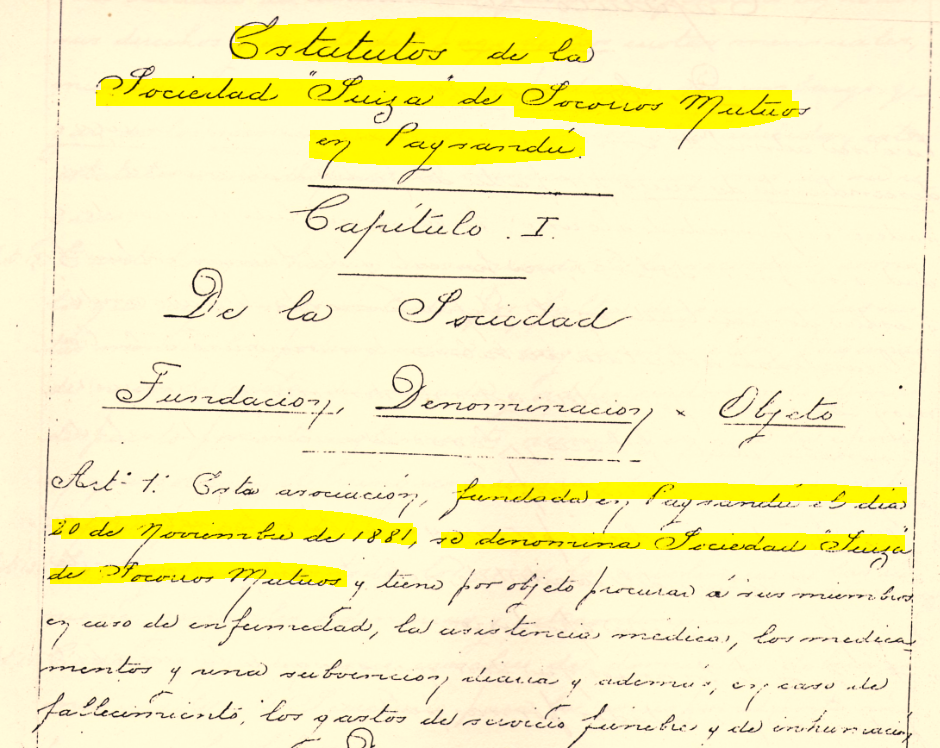 Estatutos de la
Sociedad "Suiza" de Socorros Mutuos
en Paysandú.
Capítulo I.
De la Sociedad
Fundacion, Denominacion y Objeto
Art. 1. Esta asociación, fundada en Paysandú el dia
20 de Noviembre de 1881, se denomina Sociedad "Suiza"
de Socorros Mutuos y tiene por objeto procurar á sus miembros
en caso de enfermedad, la asistencia médica, los medica-
mentos y una subvencion diaria y además, en caso de
fallecimiento, los gastos de servicio fúnebre y de inhumación